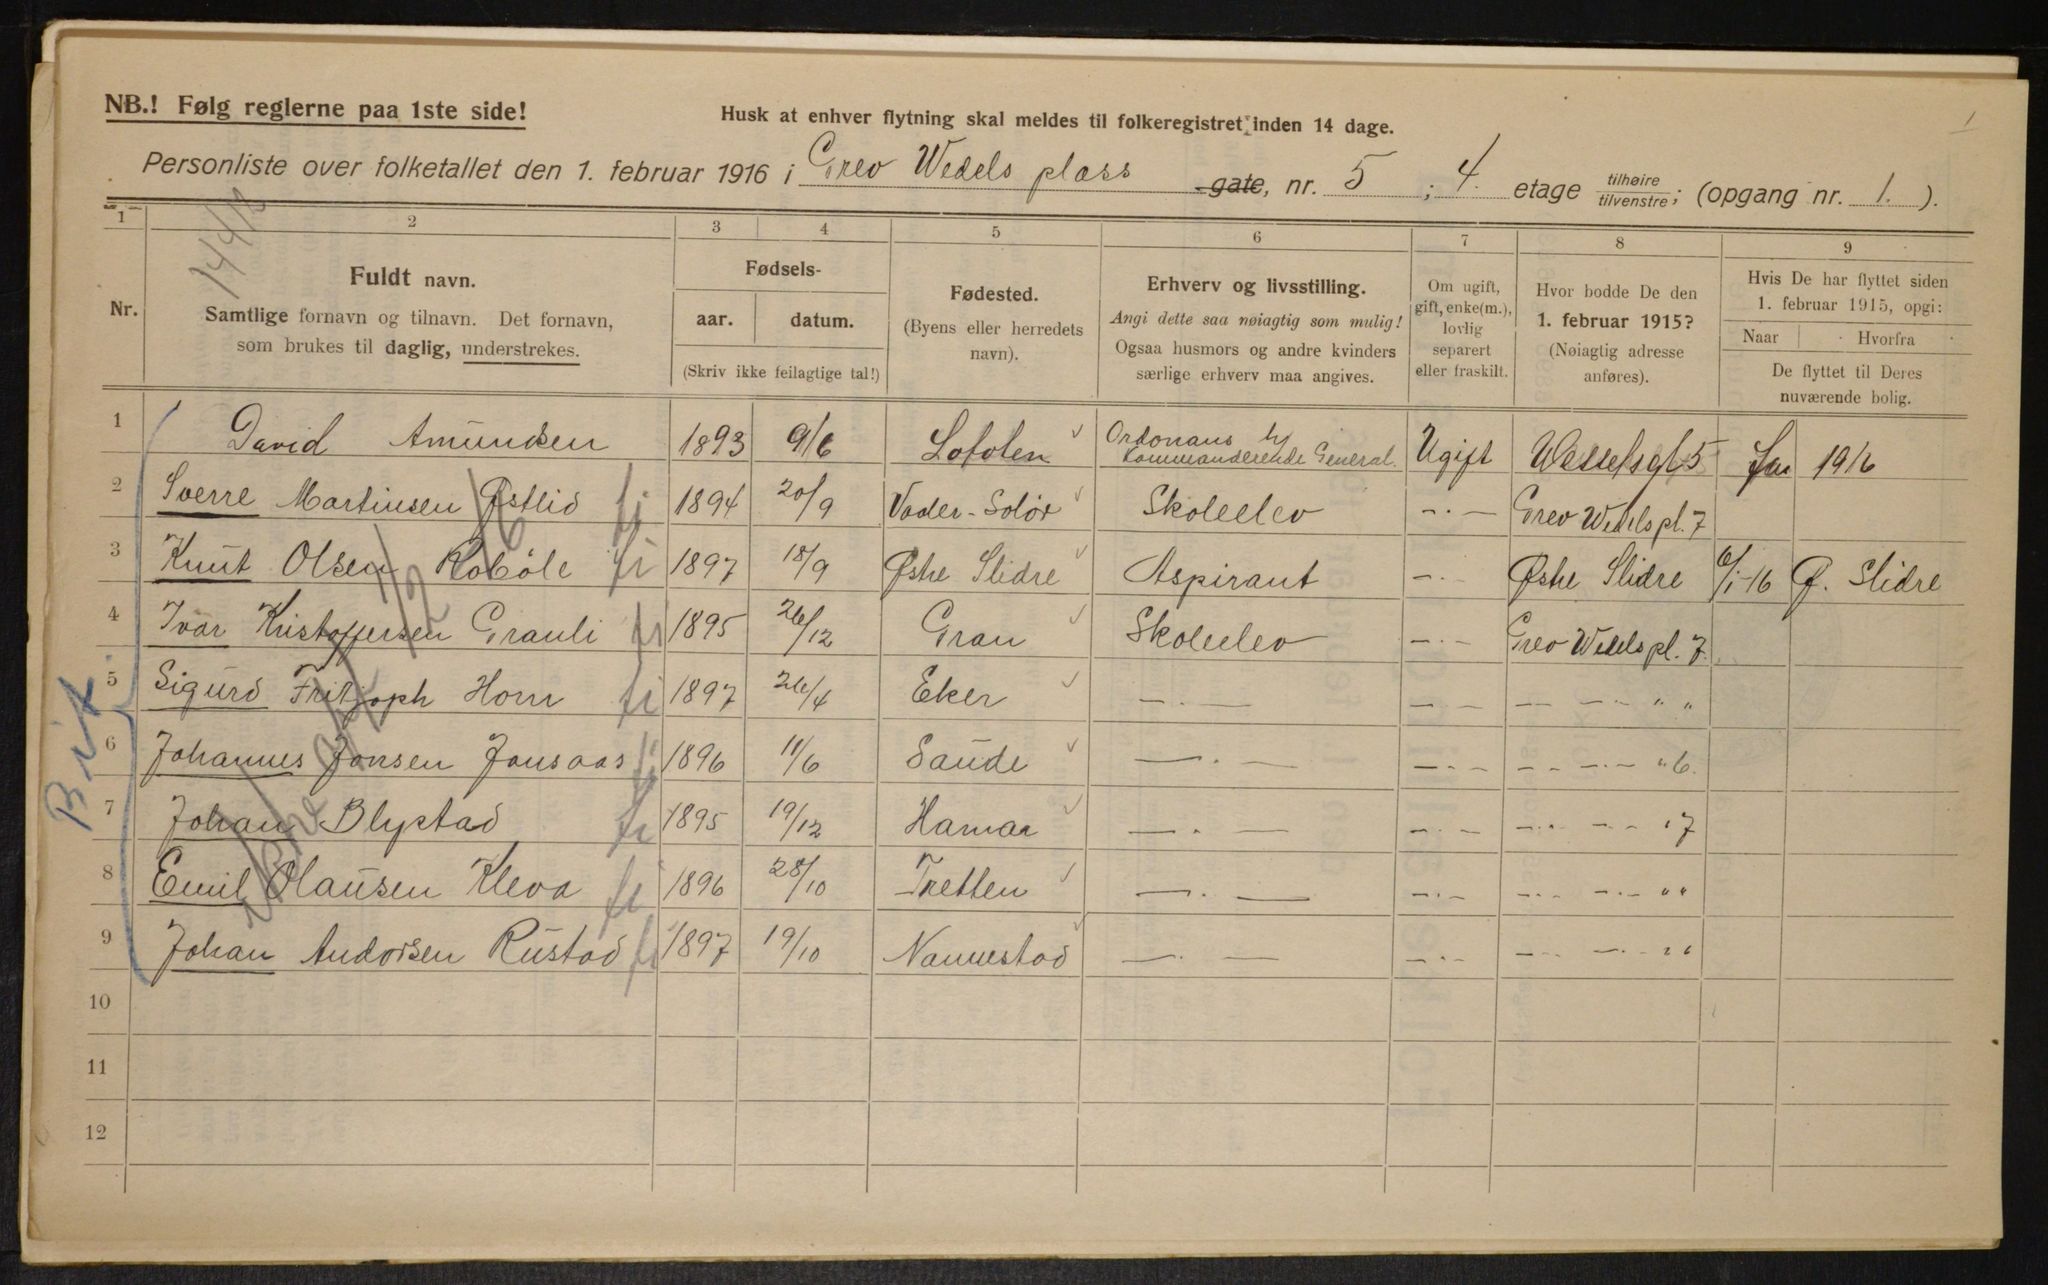 NB.! Følg reglerne paa 1ste side!
Husk at enhver flytning skal meldes til folkeregistret inden 14 dage.
Personliste over folketallet den 1. februar 1916 i Grev Wedels plass gate, nr. 5 ; 4. etage tilhøire / tilvenstre ; (opgang nr. 1. ).
1 2 3 4 5 6 7 8 9
Nr.
Fuldt navn.
Samtlige fornavn og tilnavn. Det fornavn,
som brukes til daglig, understrekes.
Fødsels-
aar. datum.
(Skriv ikke feilagtige tal!)
Fødested.
(Byens eller herredets
navn).
Erhverv og livsstilling.
Angi dette saa nøiagtig som mulig!
Ogsaa husmors og andre kvinders
særlige erhverv maa angives.
Om ugift,
gift, enke(m.),
lovlig
separert
eller fraskilt.
Hvor bodde De den
1. februar 1915?
(Nøiagtig adresse
anføres).
Hvis De har flyttet siden
1. februar 1915, opgi:
Naar Hvorfra
De flyttet til Deres
nuværende bolig.
1 David Amundsen 1893 9/6 Lofoten Ordonans Kommanderende General. Ugift Wesselsgt 5 Jan 1916
2 Sverre Martinsen Østlid 1894 20/9 Vaaler-Solør Skoleelev -"- Grev Wedels pl. 7
3 Knut Olsen Robøle 1897 18/9 Østre Slidre Aspirant -"- Østre Slidre 6/1-16 Ø. Slidre
4 Ivar Kristoffersen Granli 1895 26/12 Gran Skoleelev -"- Grev Wedels pl. 7.
5 Sigurd Fritjoph Horn 1897 26/4 Eker -"- -"- -"- -"- " "
6 Johannes Jonsen Jonsaas 1896 11/6 Saude -"- -"- -"- -"- " 6.
7 Johan Blystad 1895 19/12 Hamar -"- -"- -"- -"- " 7
8 Emil Olausen Kleva 1896 28/10 Tretten -"- -"- -"- -"- " "
9 Johan Andorsen Rustad 1897 19/10 Nannestad -"- -"- -"- -"- " "
10
11
12